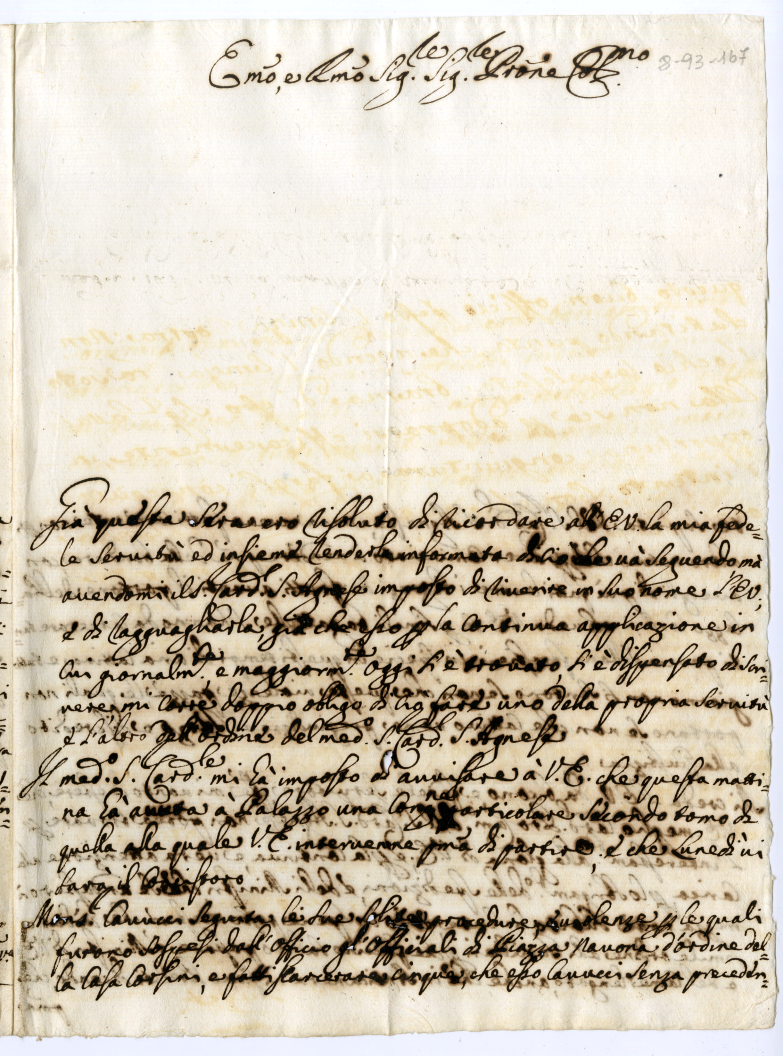 Emo, e Rmo Sig.re Sig.re Prone Col.mo
8-93-167
Già questa sera ero risoluto di ricordare all'E.V. la mia fede=
le servitù ed insieme renderla informata di ciò che và seguendo mà
avendomi il S. Card.le S. Agnese imposto di riverire in suo nome l'E.V,
e di ragguagliarla già che esso p la continua applicazione in
cui giornalm.te, e maggiorm.te oggi si è trovato, si è dispensato di scri=
vere, mi corre doppio obligo di ciò fare uno della propria servitù
e l'altro dell'ordine del med.o S. Card.l S. Agnese
Il med.o S. Card.le mi hà imposto di avvisare à V.E. che questa matti=
na hà avuta à Palazzo una particolare secondo tomo di
quella alla quale V.E. intervenne pma di partire, e che Lunedì vi
sarà il Concistoro
Mons. Cavucci seguita le sue solite procedure, p le quali
furono sospesi dall'Officio gl'Officiali di Piazza Navona d'ordine del=
la Casa Corsini, e fatti scarcerare cinque, che esso Cavucci senza preceden=